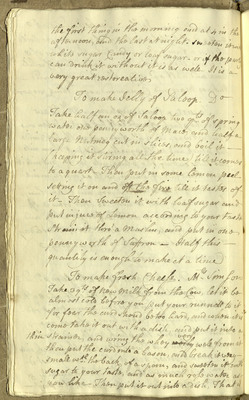 the first thing in the morning and at 4 in the
afternoon, and the last at night. sweeten it with
white sugar Candy or loaf sugar. or if the person
can drink it without it is as well. It is a
very great restorative.
To make Jelly of Saloop Do
Take half an oz of Saloop two qts of spring
water and pennyworth of Mace and half a
large Nutmeg cut in slices, and boil it
keeping it stirring all the time till it comes
to a quart. Then put in some Lemon peel
seting it on and off the fire till it tastes of
it - Then sweeten it with loaf sugar and
put in juice of Lemon according to your taste
Strain it thro a Muslin, and put in one
pennyworth of Saffron - Half this
quantity is enough to make at a time
To make fresh Cheese. Mrs
Take 2 qts of new Milk from the Cow, let it be
almost cold before you put your runnet to it
for fear the curd should be too hard, and when it is
come take it out with a dish, and put it into a
thin strainer, and wring the whey from it
then put the curd into a bason, and break it very
small with the back of a spoon, and sweeten it with
sugar to your taste, and as much rose water as
you like. Then put it out into a dish. That